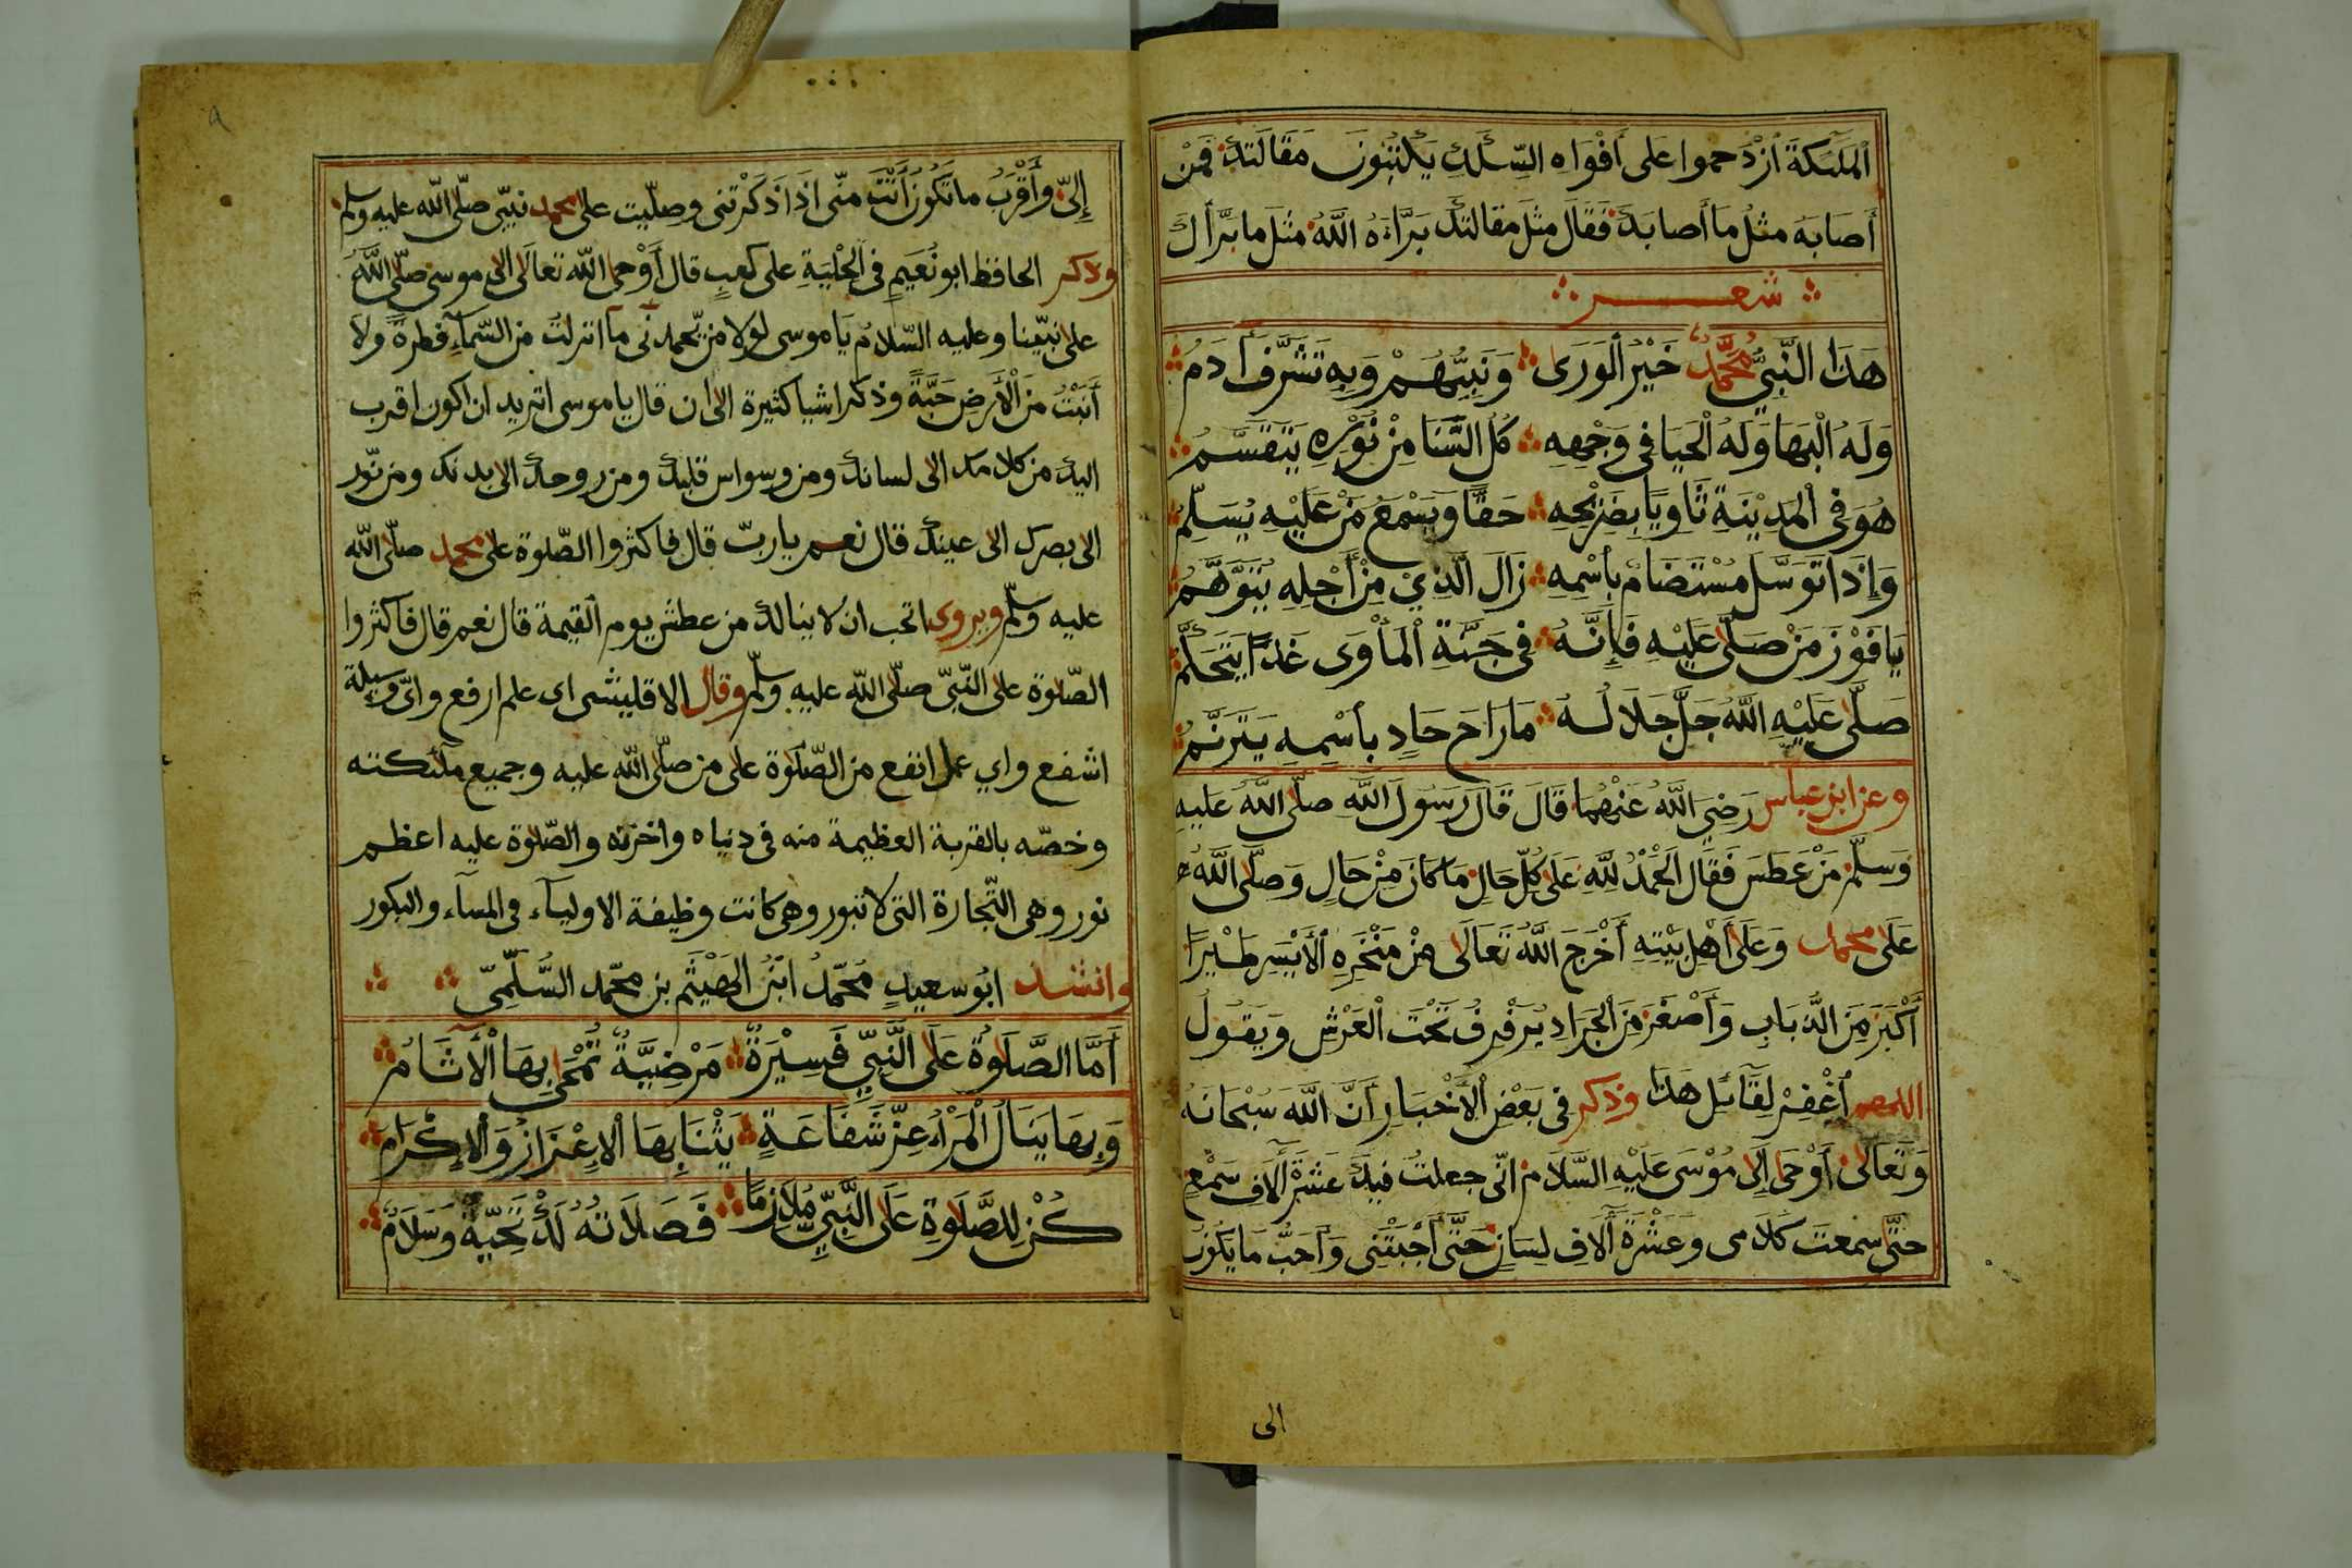 الملئكة ازدحموا على أفواه السكك يكتبون مقالتك فمن
أصابه مثل ما أصابك فقال مثل مقالتك برّاءه الله مثل ما برّأك
شعر
هَذَا النَّبِيُّ مُحَمَّدٌ خَيْرُ الْوَرَى وَنَبِيُّهُمْ وَبِهِ تَشَرَّفَ أدَمُ
وَلَهُ الْبَهَا وَلَهُ الْحَيَا فِي وَجْهِهِ كُلُّ السَّنَا مِنْ نُوْرِهِ يَتَقَسَّمُ
هُوَ فِي الْمَدِيْنَةِ ثَاوِيًا بِضَرِيْحِهِ حَقًّا وَيَسْمَعُ مَنْ عَلَيْهِ يُسَلِّمُ
وَإِذَا تَوَسَّلَ مُسْتَضَامٌ بِأسْمِهِ زَالَ الَّذِيْ مِنْ أَجْلِهِ يَتَوَهَّمُ
يَا فَوْزَ مَنْ صَلَّى عَلَيْهِ فَإِنَّهُ فِي جَنَّةِ الْمَأْوَى غَدًا يَتَحَكَّمُ
صَلَّى عَلَيْهِ اللَّهُ جَلَّ جَلَالُهُ مَا رَاحَ حَادٍ بِأسْمِهِ يَتَرَنَّمُ
وعن ابن عباس رَضِيَ اللَّهُ عَنْهُمَا قَالَ قَالَ رَسُولُ اللَّهِ صلّى اللَّهُ عَلَيهِ
وَسَلَّمَ مَنْ عَطَسَ فَقَالَ الْحَمْدُ لِلَّهِ عَلَى كُلِّ حَالٍ مَا كَانَ مِنْ حَالٍ وَصَلَّى اللَّهُ
عَلَى محمد وَعَلَى أَهْلِ بَيْتِهِ أَخْرَجَ اللَّهُ تَعَالَى مِنْ مَنْخَرِهِ الْأَيْسَرِ طَيْرًا
أَكْبَرَ مِنَ الذُّبَابِ وَأَصْغَرَ مِنَ الْجَرَادِ يُرَفْرِفُ تَحْتَ الْعَرْشِ وَيَقُولُ
اللهم أغْفِرْ لِقَائِلِ هَذَا وذكر فِي بَعْضِ الْأَخْبَارِ أَنَّ اللَّهَ سُبْحَانَهُ
وَتَعَالَى أَوْحَى إِلَى مُوْسَى عَلَيْهِ السَّلَام انّى جعلت فيك عَشَرَةَ ألَافِ سَمْعٍ
حتّى سمعت كَلَامى وَعَشْرَةَ آلَافِ لِسَانٍ حَتَّى أَجَبْتَنِى وَأَحَبُّ مَا يَكُون
الى
إِلىّ وأَقْرَبُ ما تَكُونُ أَنْتَ منّى اذَا ذَكَرْتنى وصلّيت على محمد نبيّى صلّى الله عليه وسلم
وذكر الحافظ ابو نُعَيمٍ فى الْحِلْيَةِ على كعبٍ قال أَوْحى الله تعالَى الى موسى صلّى اللّهُ
على نبيّنا وعليه السّلامُ يَا موسى لولا من يحمدنى مآ انزلتُ من السّمآءِ قطرةً ولا
أَنبَتُّ من الْأَرضِ حَبَّةً وذكر اشيا كثيرة الى ان قال يا موسى اتريد ان اكون اقرب
اليك من كلامك الى لسانك ومن وسواس قلبك ومن روحك الى بدنك ومن نّور
الى بصرك الى عينك قال نعم يا ربّ قال فاكثروا الصّلوة على محمد صلّى الله
عليه وسلّم ويروى اتحب ان لا ينالك من عطش يوم القيمة قال نعم قال فاكثروا
الصّلوة على النّبىّ صلّى الله عليه وسلّم وقال الاقليشى اى علم ارفع واىّ وسيلة
اشفع واي عمل انفع من الصّلوة على من صلّى الله عليه وجميع ملئكته
وخصّه بالقربة العظيمة منه فى دنياه واخرته والصّلوة عليه اعظم
نور وهى التّجارة التى لا تبور وهى كانت وظيفة الاوليآء فى المسآء والبكور
وانشد ابُو سعيدٍ مُحمّدُ ابْنُ الهَيْثَم بن محمّد السُّلَمِىّ
أَمَّا الصَّلَوةُ عَلَى النَّبِيِّ فَسِيْرَةٌ مَرْضِيَّةٌ تُمْحَى بِهَا الْأثَامُ
وَبِهَا يَنَالُ الْمَرْءُ عِزَّ شَفَاعَةٍ يَثْنَا بِهَا الإِعْزَازُ وَالْإِكْرَام
كُنْ لِلصَّلَوةِ عَلَى النَّبِيِّ مُلَازِمًا فَصَلَاتُهُ لَكَ تَحِيَّةٌ وَسَلَامٌ